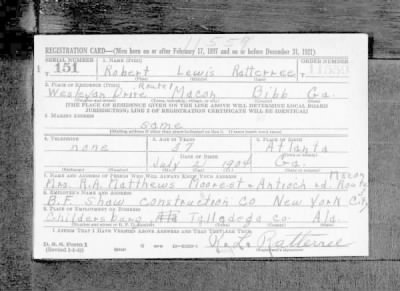 11,559
REGISTRATION CARD—(Men born on or after February 17, 1897 and on or before December 31, 1921)
SERIAL NUMBER 1. NAME (Print) ORDER NUMBER
T 151 Robert Lewis Ratterree 11559
(First) (Middle) (Last)
2. PLACE OF RESIDENCE (Print) Route 1
Wesleyan Drive Macon Bibb Ga.
[THE PLACE OF RESIDENCE GIVEN ON THE LINE ABOVE WILL DETERMINE LOCAL BOARD
JURISDICTION; LINE 2 OF REGISTRATION CERTIFICATE WILL BE IDENTICAL]
3. MAILING ADDRESS
same
4. TELEPHONE 5. AGE IN YEARS 6. PLACE OF BIRTH
none 37 Atlanta
DATE OF BIRTH
July 2 1904 Ga.
7. NAME AND ADDRESS OF PERSON WHO WILL ALWAYS KNOW YOUR ADDRESS Macon
Mrs. R.A. Matthews Moorest + Antioch rd. Route 1
8. EMPLOYER'S NAME AND ADDRESS
B.F. Shaw construction Co New York City
9. PLACE OF EMPLOYMENT OR BUSINESS
Childersburg Ala Talladega co. Ala.
I AFFIRM THAT I HAVE VERIFIED ABOVE ANSWERS AND THAT THEY ARE TRUE.
D. S. S. Form 1
R. L. Ratterree